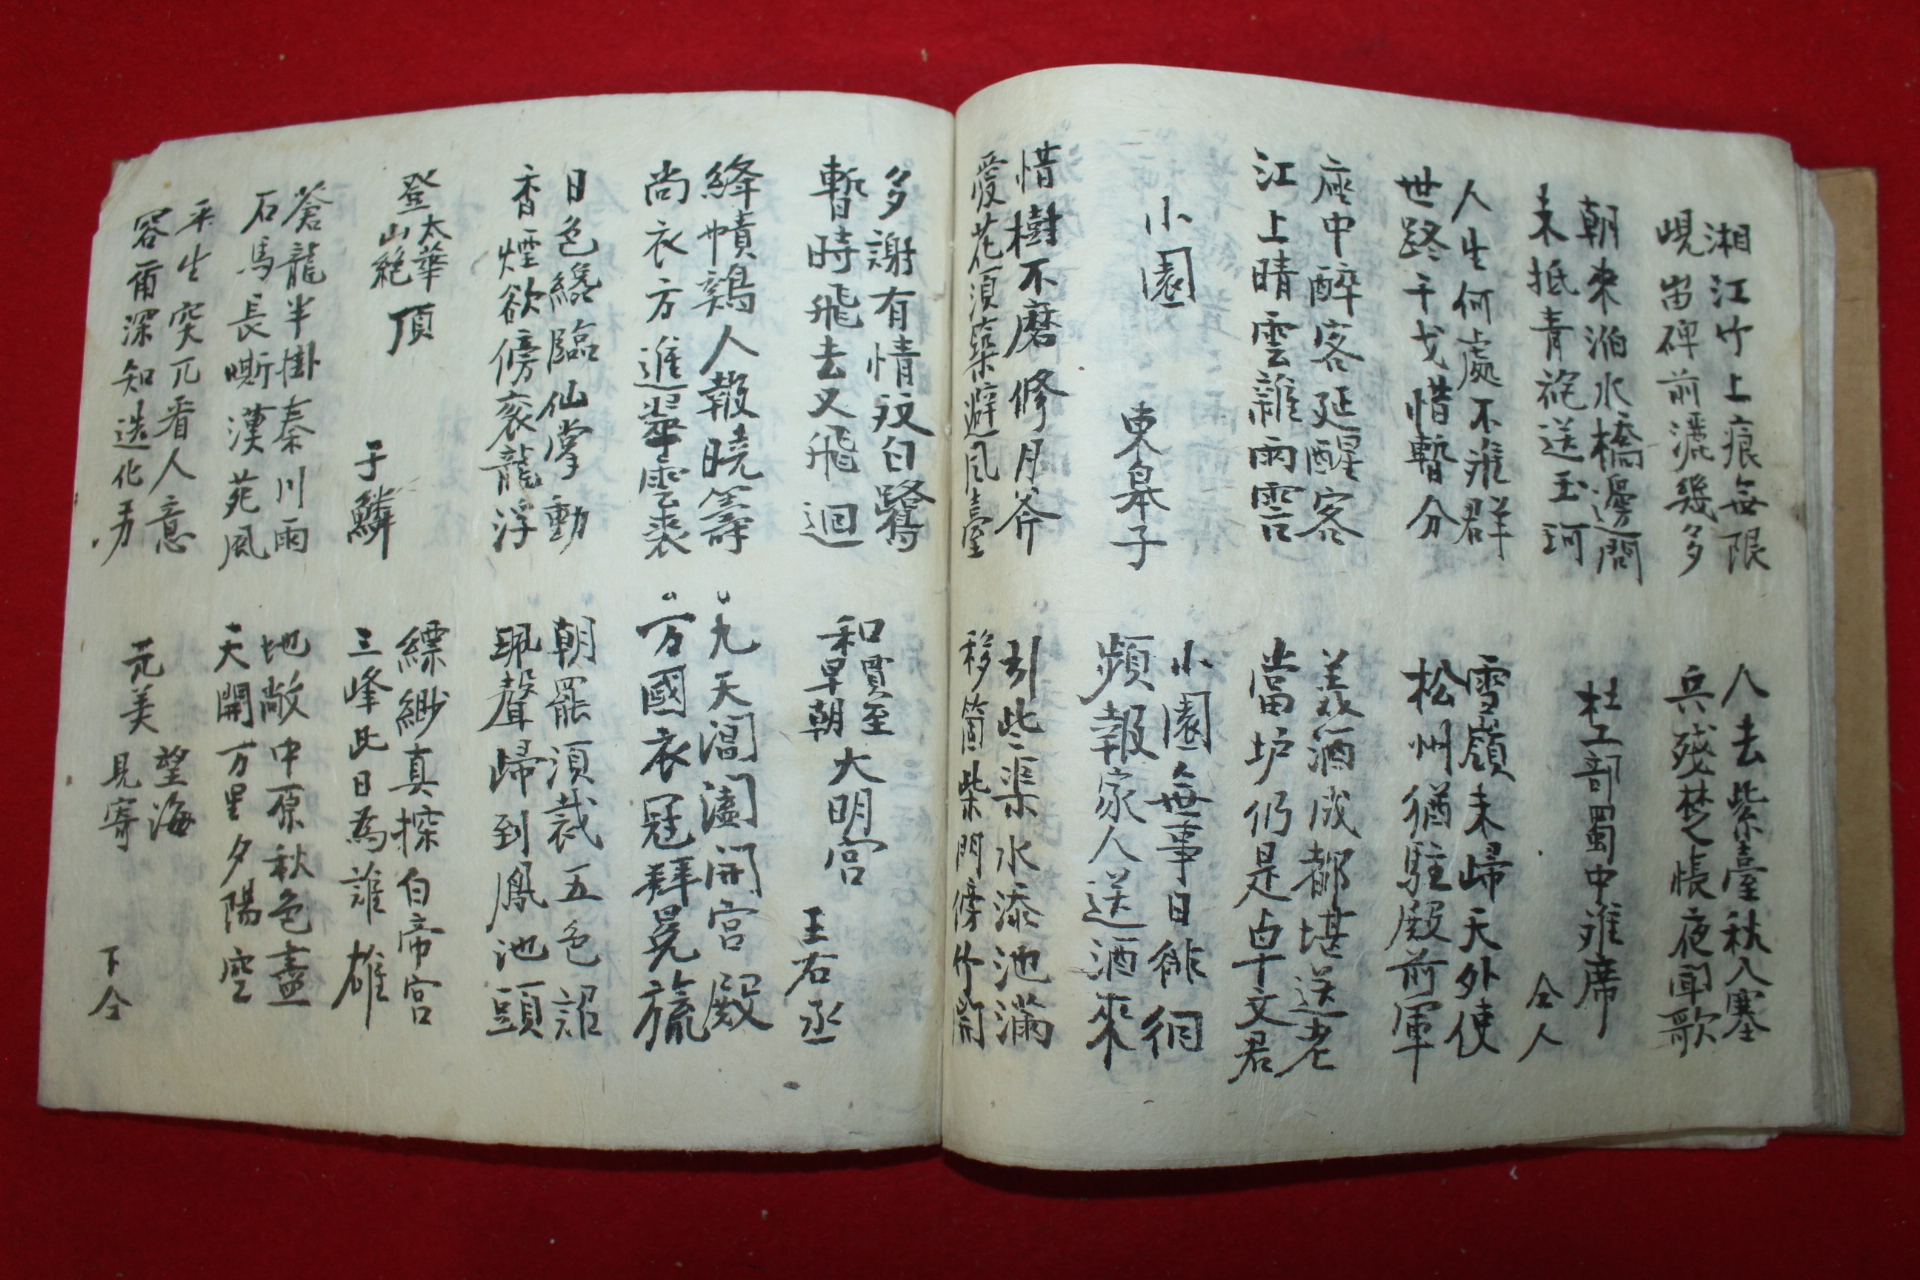 湘江竹上痕無限
峴首碑前灑幾多
人去紫臺秋入塞
兵殘楚帳夜聞歌
朝來灞水橋邊問
未抵青袍送玉珂
杜工部蜀中離席 仝人
人生何處不離群
世路干戈惜暫分
雪嶺未歸天外使
松州猶駐殿前軍
座中醉客延醒客
江上晴雲雜雨雲
美酒成都堪送老
當垆仍是卓文君
小園 東皋子
小園無事日徘徊
頻報家人送酒來
惜樹不磨修月斧
愛花須築避風臺
引此渠水添池滿
移箇柴門傍竹開
多謝有情双白鷺
暫時飛去又飛迴
和賈至早朝大明宮 王右丞
絳幘鷄人報曉籌
尚衣方進翠雲裘
九天閶闔開宮殿
万國衣冠拜冕旒
日色纔臨仙掌動
香煙欲傍袞龍浮
朝罷須裁五色詔
珮聲歸到鳳池頭
登太華山絶頂 于鱗
縹緲真探白帝宮
三峰此日為誰雄
蒼龍半掛秦川雨
石馬長嘶漢苑風
地敞中原秋色盡
天開万里夕陽空
平生突兀看人意
容爾深知造化功
元美望海見寄 下仝